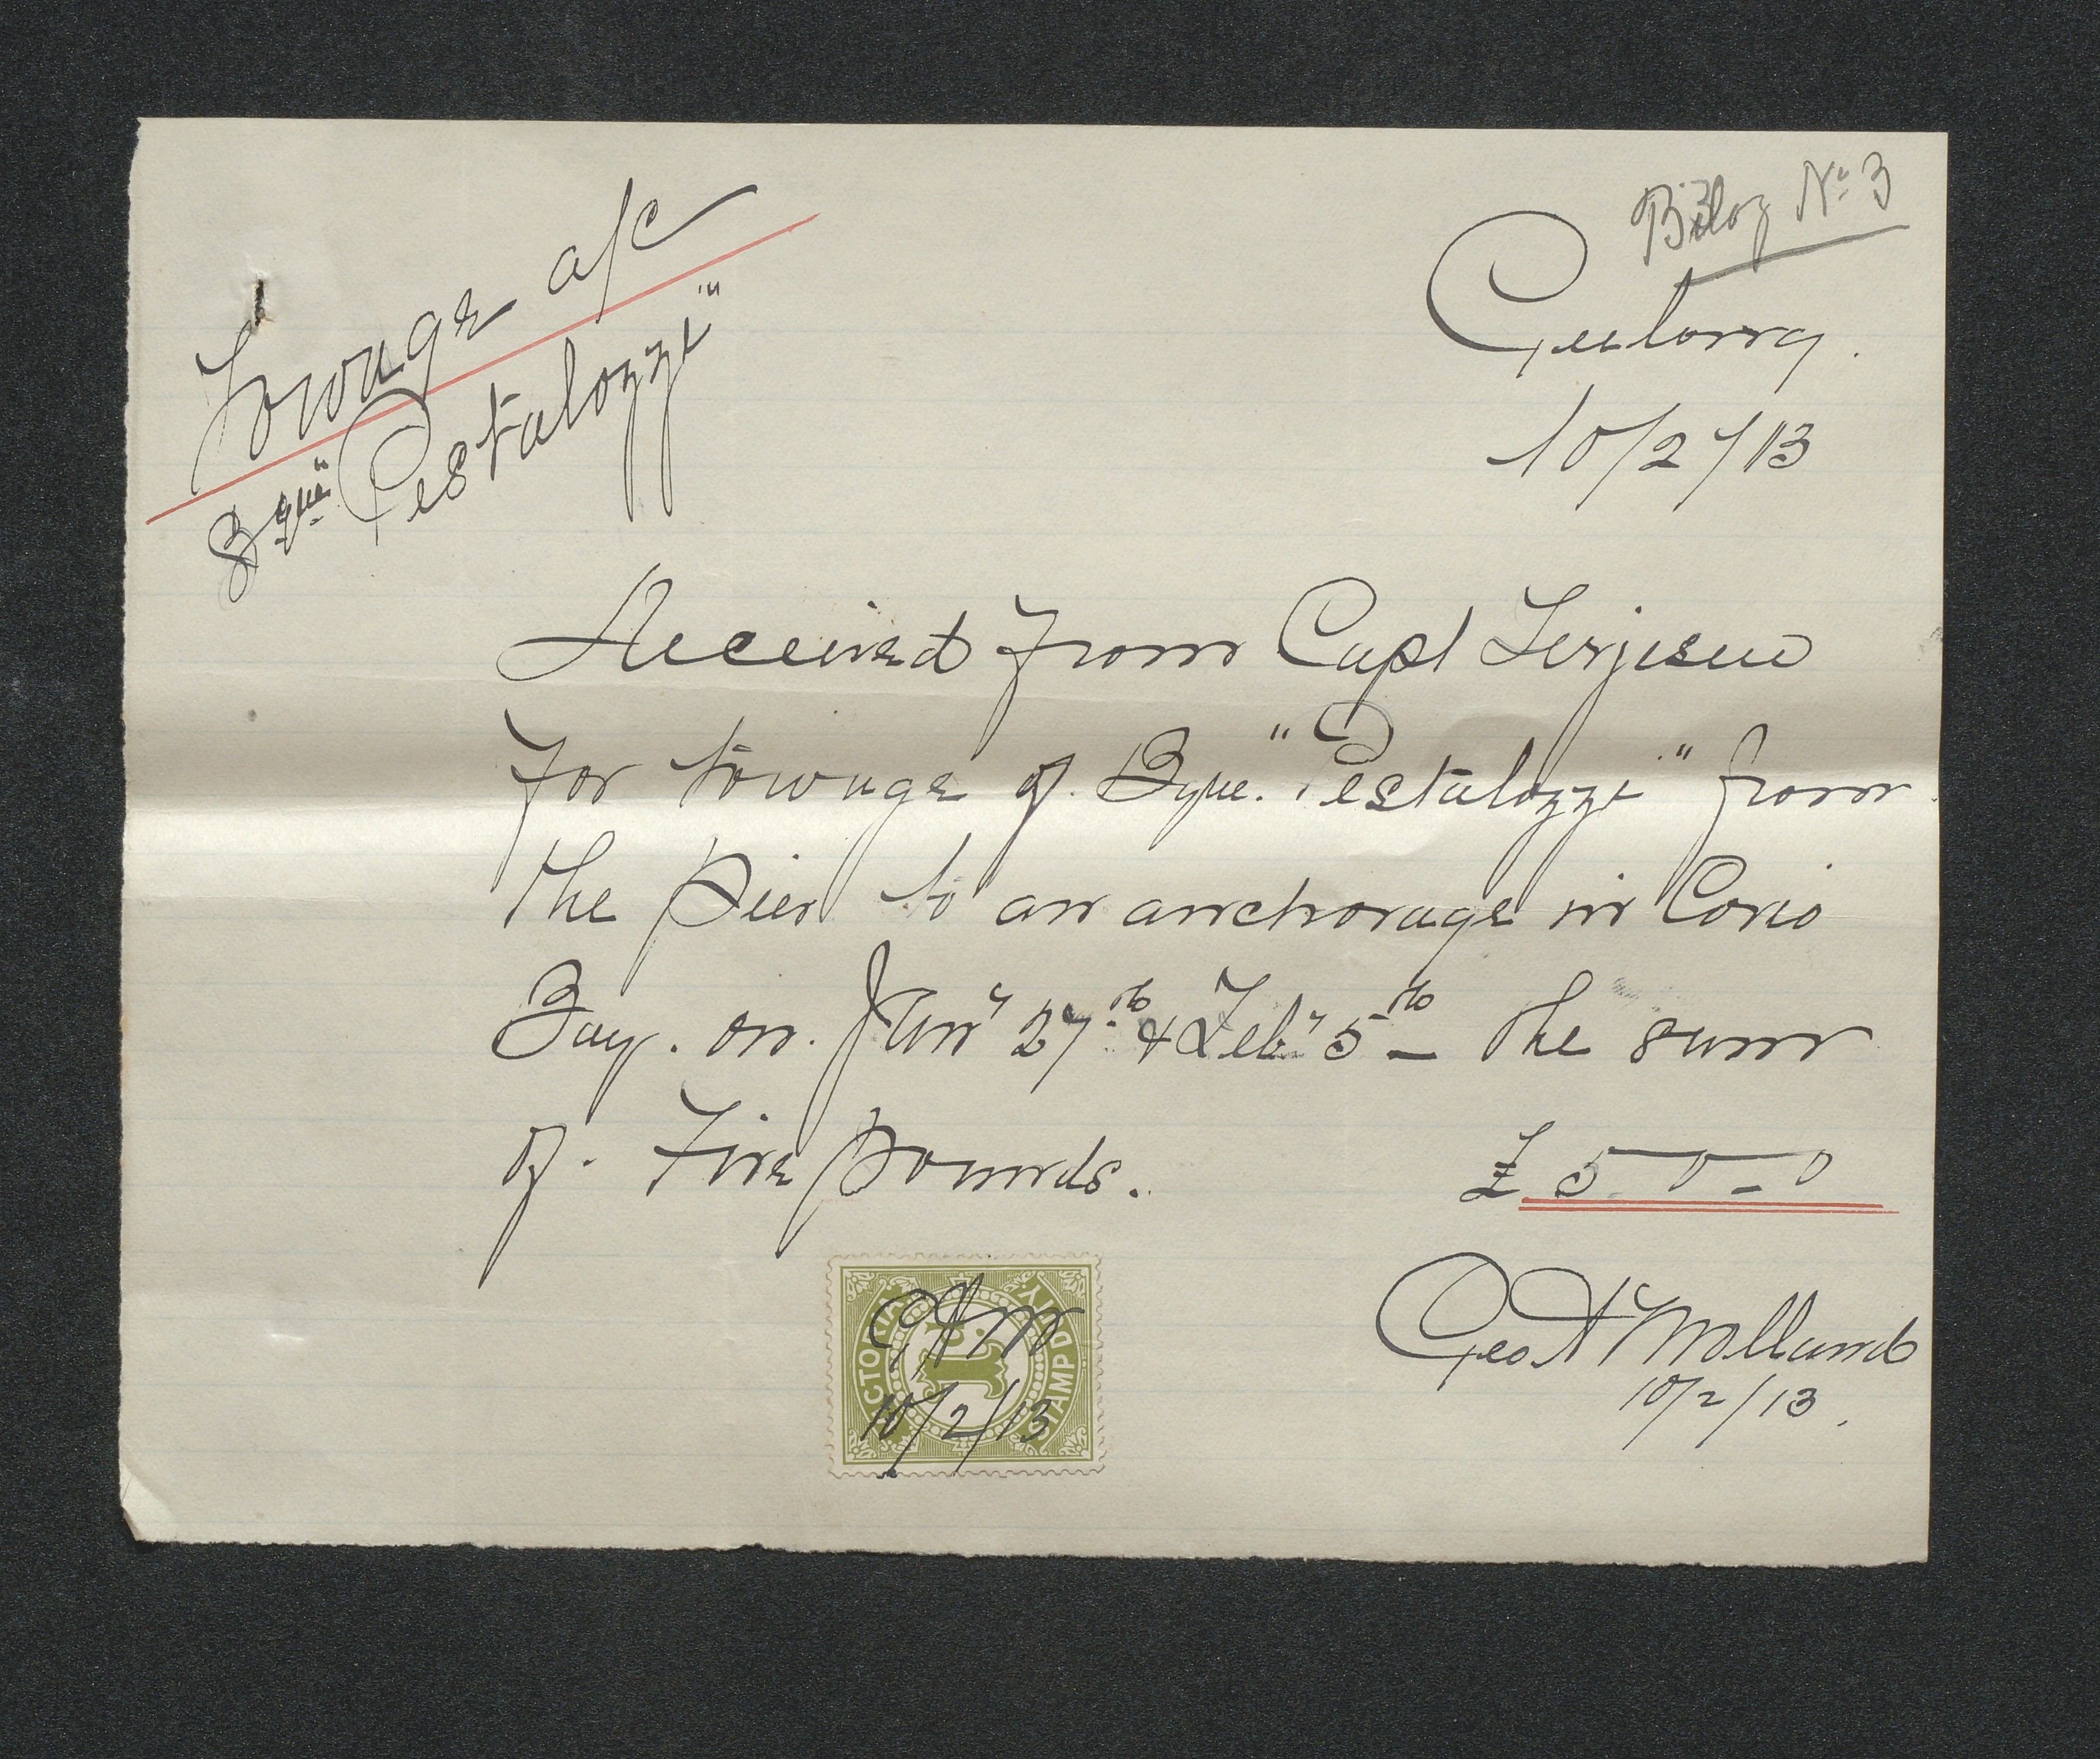 Bilag No 3
Towage a/c
Bque "Pestalozzi"
Geelong.
10/2/13
Received from Capt Terjesen
for towage of Bque. "Pestalozzi" from
the Pier to an anchorage in Corio
Bay. on. Jany 27th & Feby 5th the sum
of. Five pounds. £ 5-0-0
VICTORIA
1D.
STAMP DUTY.
10/2/13
Geo
10/2/13.